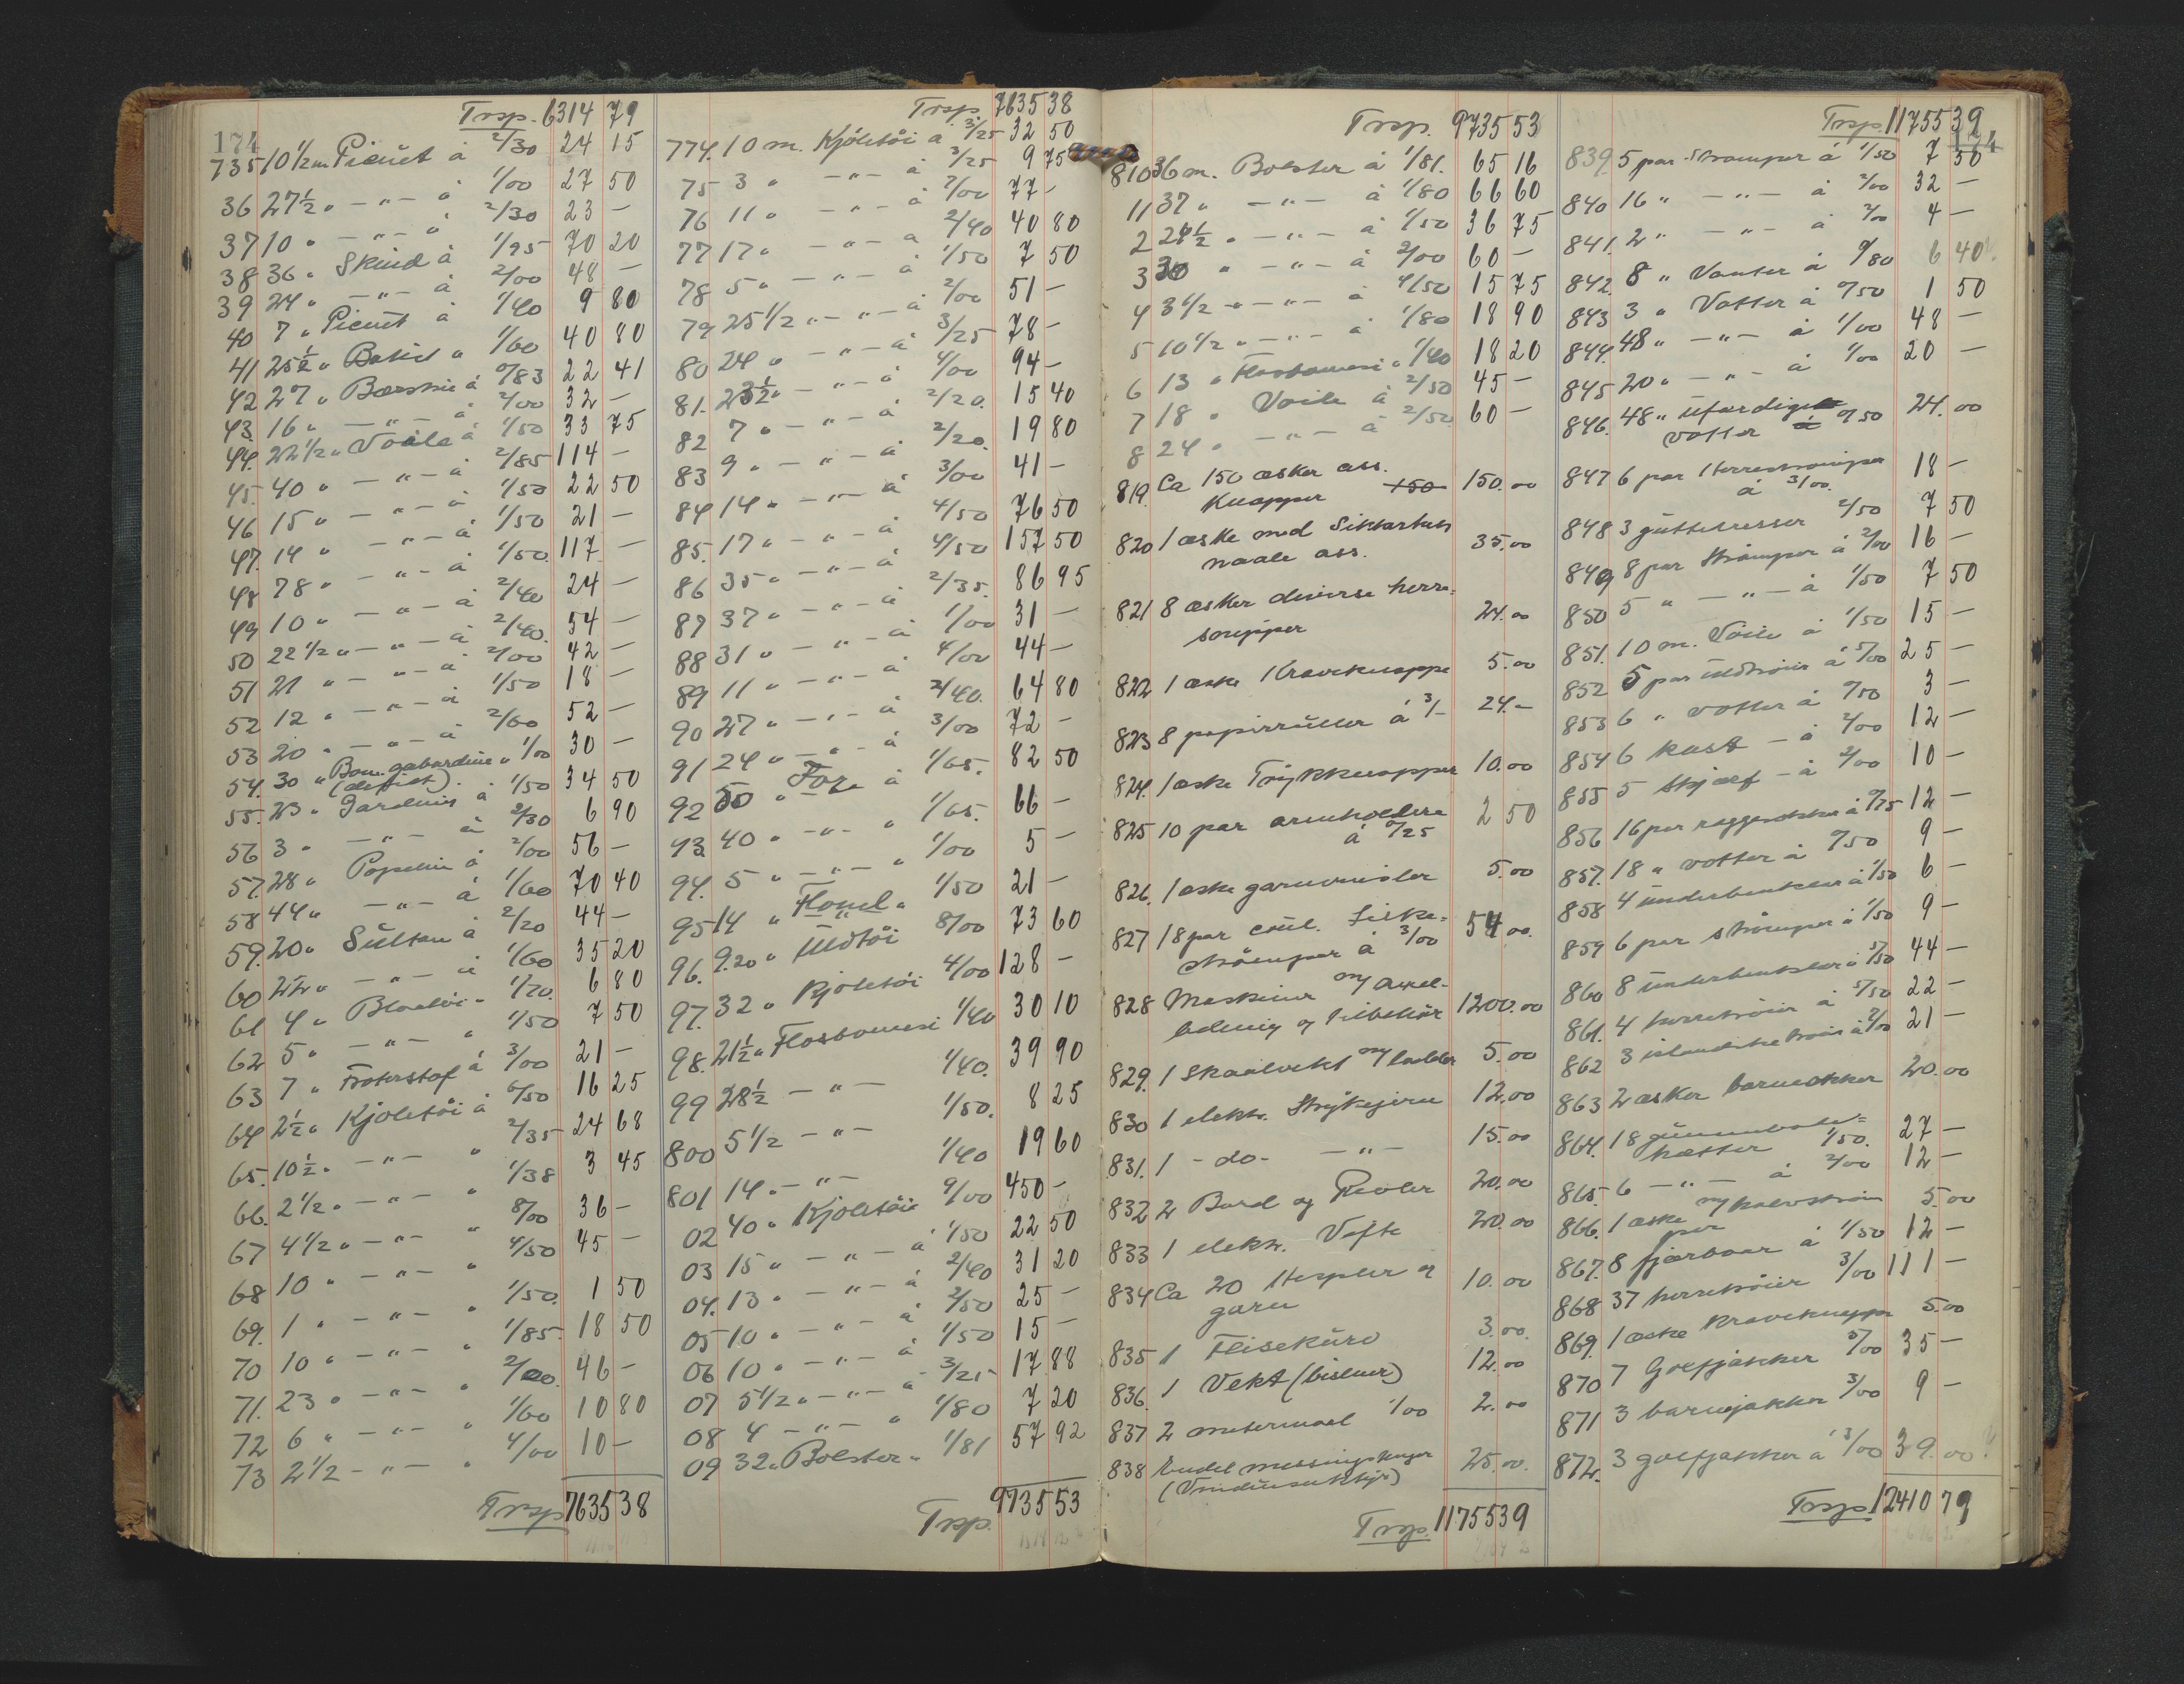 174
Trsp. 6314 79
735 10 1/2 m Picuet à 2/30 24 15
36 27 1/2 " - " - à 1/00 27 50
37 10 " - " - " 2/30 23 -
38 36 " Skind à 1/95 70 20
39 24 " - " - à 2/00 48 -
40 7 " Picuet à 1/40 9 80
41 25 1/2 " Batist " 1/60 40 80
42 27 " à 0/83 22 41
43 16 " - " - à 2/00 32 -
44. 22 1/2 " Voile à 1/50 33 75
45. 40 " - " - à 2/85 114 -
46 15 " - " - à 1/50 22 50
47. 14 " - " - à 1/50 21 -
48 78 " - " - à 1/50. 117 -
49 10 " - " - à 2/40 24 -
50 22 1/2 " - " - à 2/40. 54 -
51 21 " - " - à 2/00 42 -
52 12 " - " - à 1/50 18 -
53 20 " - " - à 2/60 52 -
54. 30 " Bom. gabardine " 1/00 30 -
(defict).
55. 23 " Gardiner à 1/50 34 50
56 3 " - " - à 2/30 6 90
57. 28 " Popelin à 2/00 56 -
58 44 " - " - à 1/60 70 40
59. 20 " Sultan à 2/20 44 -
60 22 " - " - à 1/60 35 20
61 4 " " 1/70. 6 80
62 5 " - " - " 1/50 7 50
63 7 " Froterstof à 3/00 21 -
64 2 1/2 " Kjoletöi à 6/50 16 25
65. 10 1/2 " - " - " 2/35 24 68
66. 2 1/2 " - " - " 1/38 3 45
67 4 1/2 " - " - " 8/00 36 -
68 10 " - " - " 4/50 45 -
69. 1 " - " - " 1/50. 1 50
70 10 " - " - " 1/85. 18 50
71. 23 " - " - " 2/00. 46 -
72 6 " - " - " 1/60 10 80
73 2 1/2 - " - " 4/00 10 -
Trsp 7635 38
Trsp. 7635 38
774. 10 m. Kjöletöi à 3/25 32 50
75 3 " - " - à 3/25 9 75
76 11 " - " - à 7/00 77 -
77 17 " - " - à 2/40 40 80
78 5 " - " - à 1/50 7 50
79 25 1/2 " - " - à 2/00 51 -
80 24 " - " - à 3/25 78 -
81. 23 1/2 " - " - à 4/00 94 -
82 7 " - " - à 2/20. 15 40
83 9 " - " - à 2/20. 19 80
84 14 " - " - à 3/00 41 -
85. 17 " - " - à 4/50 76 50
86 35 " - " - à 4/50 157 50
87 37 " - " - à 2/35. 86 95
88 31 " - " - à 1/00 31 -
89 11 " - " - à 4/00 44 -
90 27 " - " - à 2/40. 64 80
91 24 " - " - à 3/00 72 -
92 50 " For à 1/65. 82 50
93 40 " - " - " 1/65. 66 -
94. 5 " - " - " 1/00 5 -
95 14 " Flonel " 1/50 21 -
96. 9.20 " Uldtöi 8/00 73 60
97. 32 " Kjoletöi 4/00 128 -
98. 21 1/2 " Flosbomesi 1/40 30 10
99 28 1/2 - " - 1/40. 39 90
800 5 1/2 - " - 1/50. 8 25
801 14 " - " - 1/40 19 60
02 40 " Kjoletöi 9/00 450 -
03 15 " - " - à 1/50 22 50
04. 13 " - " - à 2/40 31 20
05 10 " - " - à 2/50 25 -
06 10 " - " - à 1/50 15 -
07 5 1/2 " - " - à 3/25 17 88
08 4 - " - " 1/80 7 20
09 32 " Bolster " 1/81 57 92
Trsp. 9735 53
Trsp. 9735 53
810 36 m. Bolster à 1/81. 65 16
11 37 " - " - à 1/80 66 60
2 24 1/2 " - " - à 1/50 36 75
3 30 " - " - à 2/00 60 -
4 3 1/2 " - " - à 4/50 15 75
5 10 1/2 " - " - à 1/80 18 90
6 13 " Flosbomesi " 1/40 18 20
7 18 " Voile à 2/50 45 -
8 24 " - " - à 2/50 60 -
819. Ca 150 æsker ass.
Knapper 150 150.00
820 1 æske med Sikkerheds
naale ass. 35.00
821 8 æsker diverse herre-
snipper 24.00
822 1 æske Kraveknapper 5.00
823 8 papirruller à 3/- 24.-
824. 1 æske Trykknapper 10.00
825 10 par armholdere
à 0/25 2 50
826. 1 æske garnvinsler 5.00
827 18 par cöul. Silke-
strömper à 3/00 54 00.
828 Maskiner m/ Axel-
ledning og tilbehör 1200.00
829. 1 Skaalvekt m/ lodder 5.00
830 1 elektr. Strykejern 12.00
831. 1 - do - - " - 15.00
832 2 Bord og Reoler 20.00
833 1 elektr. Vifte 20.00
834 Ca 20 Hespler og
garn 10.00
835 1 Flisekürv 3.00.
836. 1 Vekt (bismer) 12.00
837 2 metermaal 1/00 2.00
838 Endel messingstenger
(Vinduesutstyr) 25.00.
Trsp. 11755 39
Trsp 11755 39
174
839. 5 par Strømper à 1/50 7 50
840 16 " - " - à 2/00 32 -
841. 2 " - " - à 2/00 4 -
842. 8 " Vanter à 0/80 6 40.
843 3 " Votter à 0/50 1 50
844. 48 " - " - à 1/00 48 -
845 20 " - " - à 1/00 20 -
846. 48 " üfærdige
votter à 0/50 24.00
847 6 par Herrestrømper
à 3/00. 18 -
848 3 güttetresser 2/50 7 50
849 8 par Strømper à 2/00 16 -
850 5 " - " - à 1/50 7 50
851. 10 m. Voile à 1/50 15 -
852 5 par üldtröier à 5/00 25 -
853 6 " votter à 0/50 3 -
854 6 kast - à 2/00 12 -
855 5 Skjærf - à 2/00 10 -
856 16 par raggesokker à 0/75 12 -
857. 18 " votter à 0/50 9 -
858 4 ünderbenklær à 1/50 6 -
859 6 par strömper à 1/50 9 -
860 8 ünderbenklær à 5/50 44 -
861. 4 herretröier à 5/50 22 -
862 3 islandske tröier à 7/00 21 -
863 2 æsker barnesokker 20.00
864. 18 gümmibade-
hætter 1/50. 27 -
865. 6 - " - à 2/00 12 -
866. 1 æske m/ halvström
per 5.00
867. 8 fjærboar à 1/50 12 -
868 37 herretröier 3/00 111 -
869. 1 æske Kraveknapper 5.00
870 7 Golfjakker 5/00 35 -
871 3 barnejakker 3/00 9 -
872. 3 golfjakker à 3/00 39.00?
Trsp. 12410 79